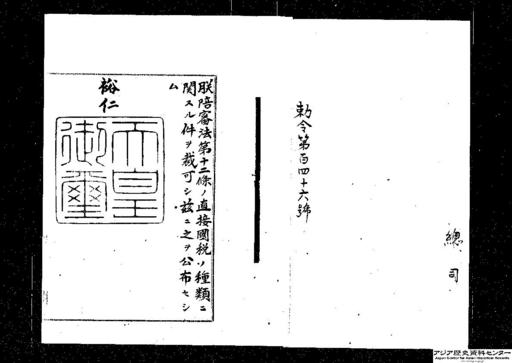 勅令第百四十六號
總
司
朕陪審法第十二條ノ直接國税ノ種類ニ
関スル件ヲ裁可シ茲ニ之ヲ公布セシ
ム
裕仁
天皇
御璽
アジア歴史資料センター
Japan Center for Asian Historical Records